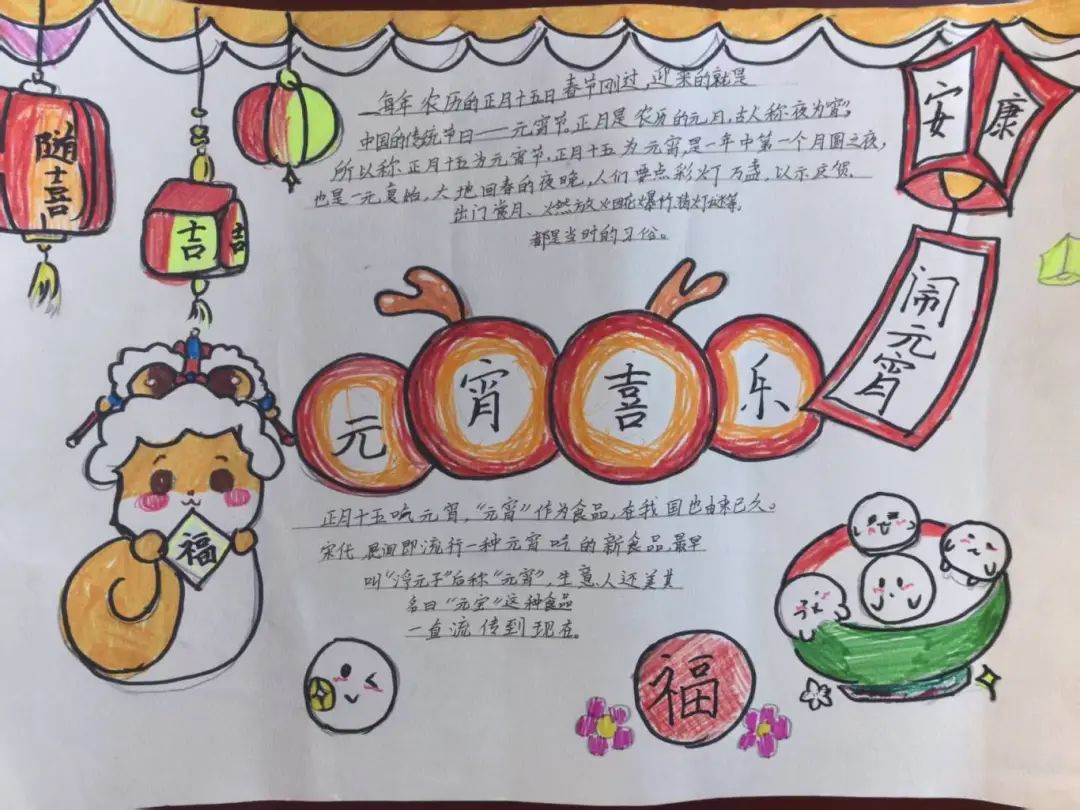 随喜
吉
吉
安康
每年农历的正月十五日春节刚过,迎来的就是
中国的传统节日——元宵节。正月是农历的元月,古人称夜为宵
所以称正月十五为元宵节,正月十五为元宵,是一年中第一个月圆之夜,
也是一元复始,大地回春的夜晚,人们要点彩灯万盏,以示庆贺.
出门赏月、燃放烟花爆竹,猜灯谜等,
都是当时的习俗。
闹元宵
元宵喜乐
福
正月十五吃元宵,"元宵"作为食品,在我国也由来已久。
宋代,民间即流行一种元宵吃的新食品,最早
叫"浮元子"后称"元宵",生意人还美其
名曰"元宝"这种食品
一直流传到现在。
福